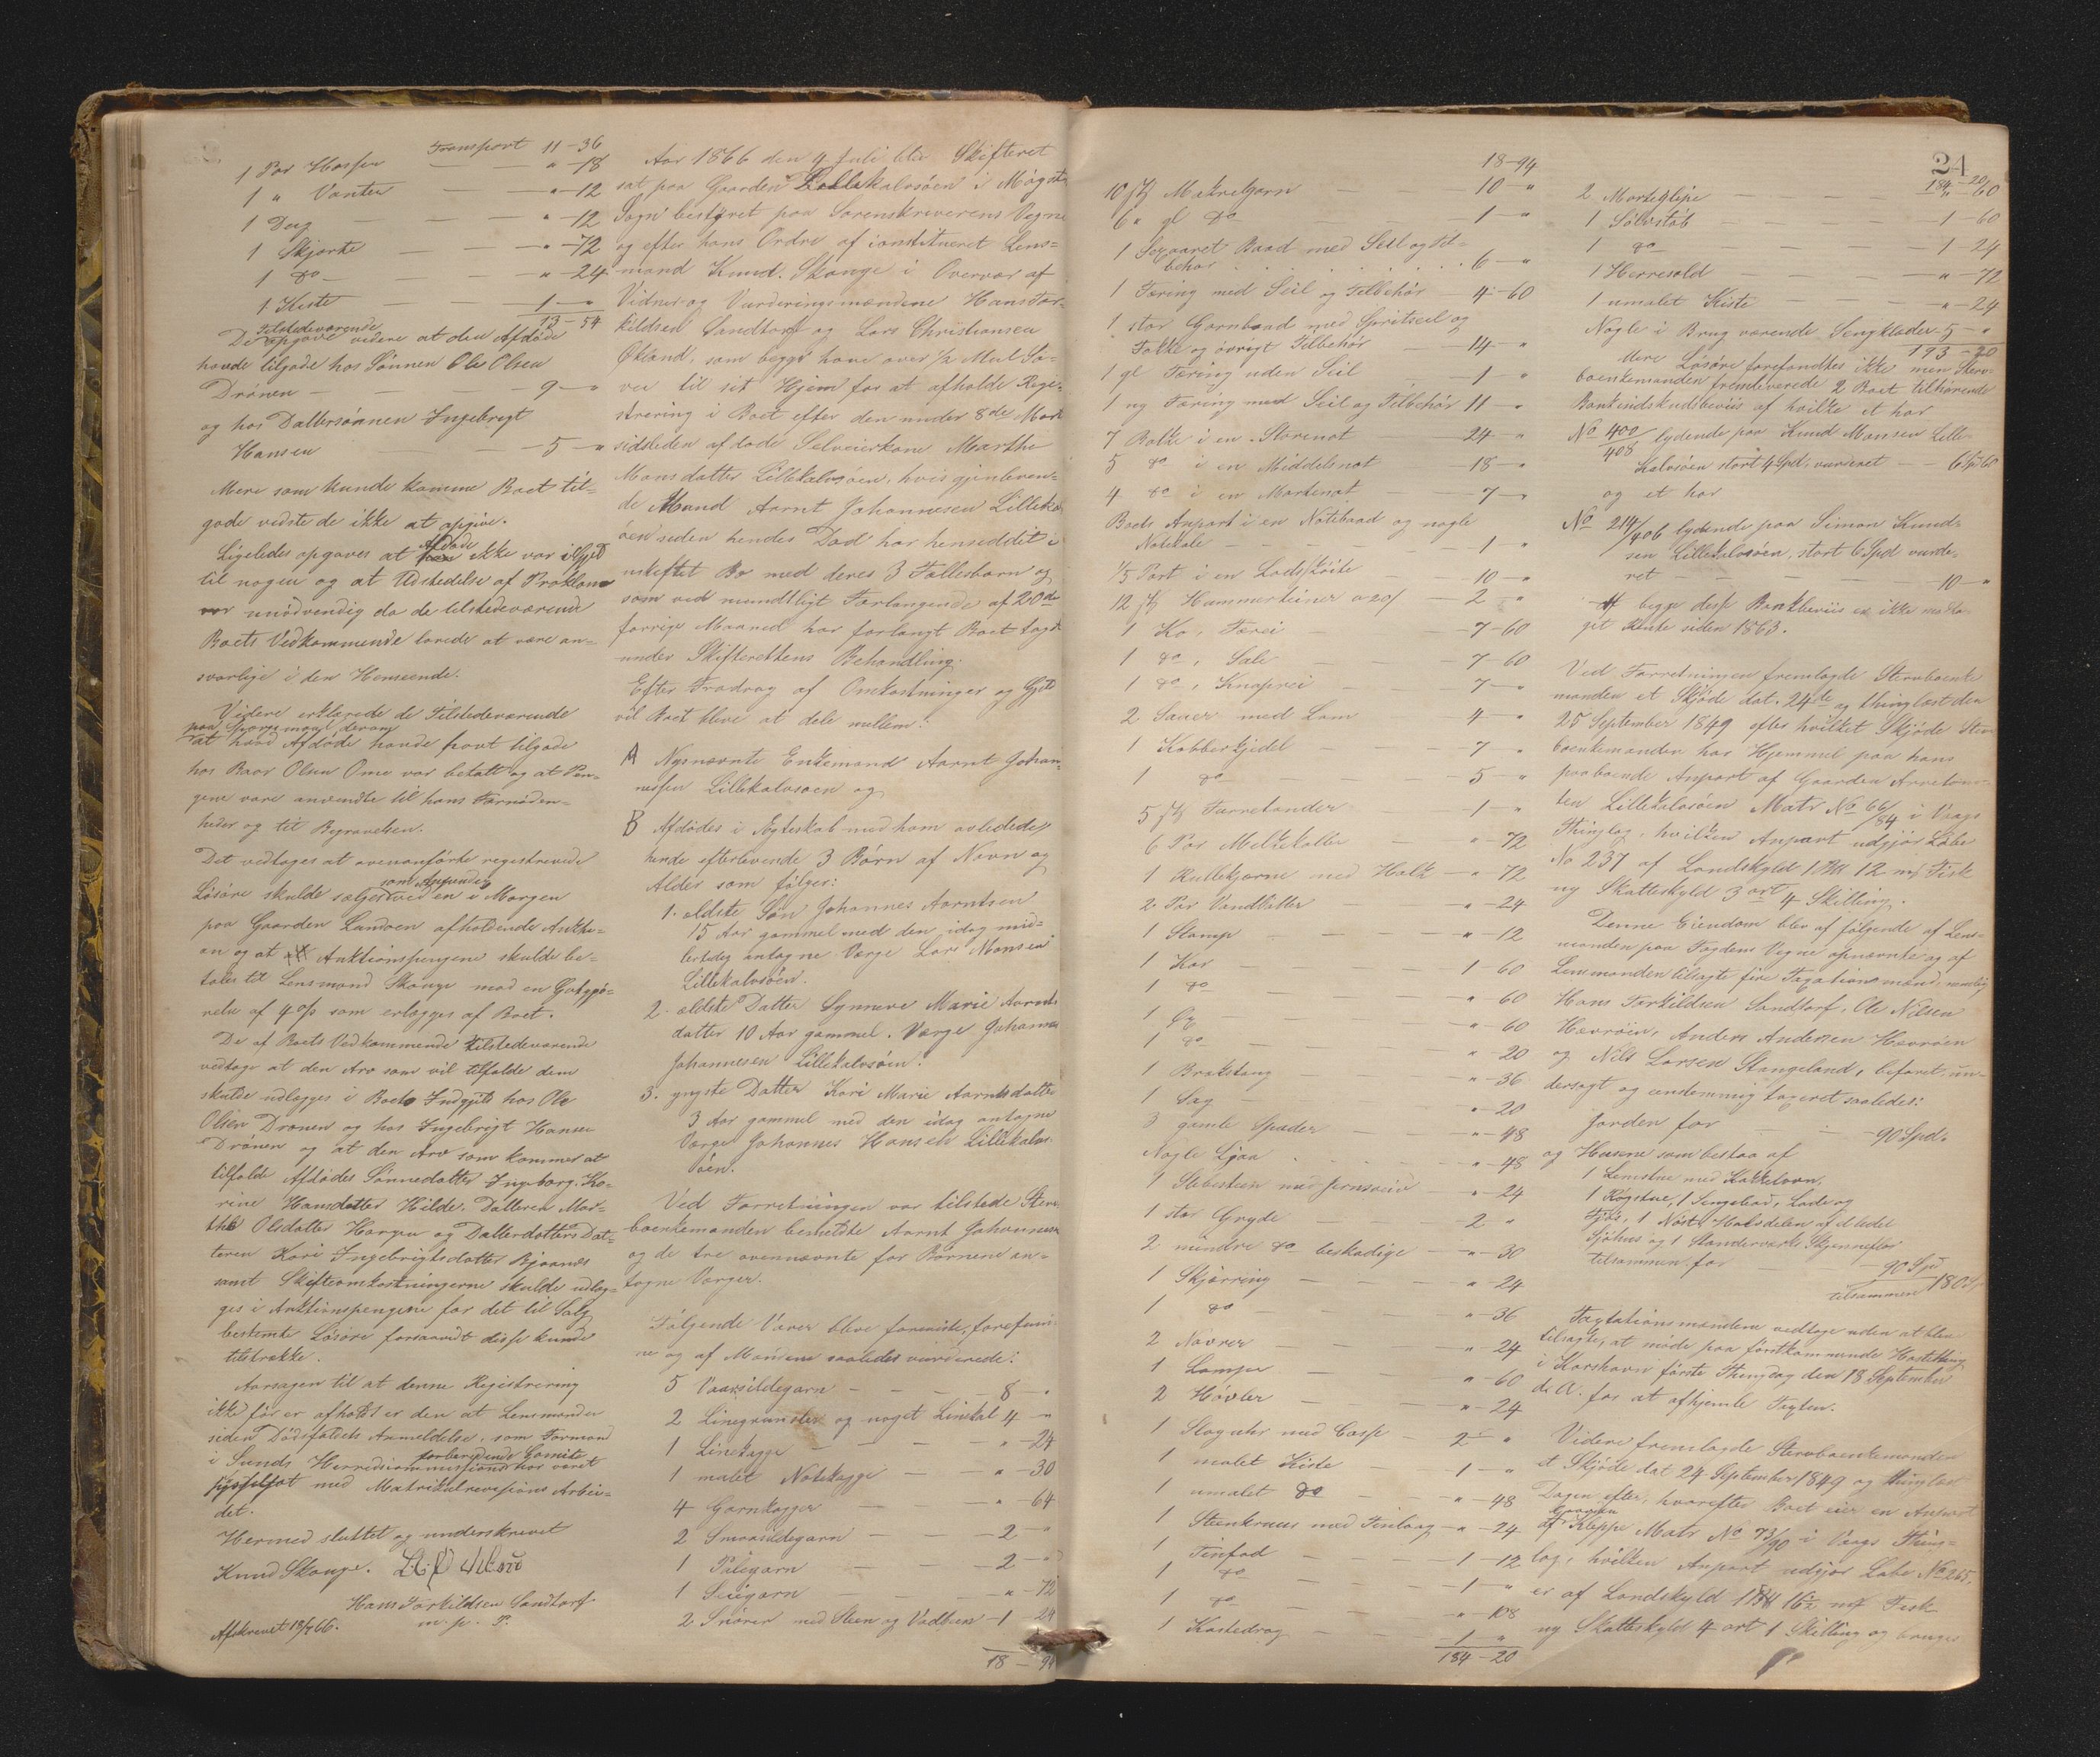 Transport 11-36
1 Par Hosser — " -18
1 " Vanter — — "-12
1 Dug — — "-12
1 Skjorte — — "-72
1 do — — "-24
1 Kiste — — 1-"
13-54
De Tilstedeværende opgave videre at den Afdøde
havde tilgode hos Sønnen Ole Olsen
Drönen — — 9-"
og hos Dattersønnen Ingebrigt
Hansen — — 5-"
Mere som kunde komme Boet til-
gode vidste de ikke at opgive.
Ligeledes opgaves at Afdøde ikke var i Gjæld
til nogen og at Udstedelse af Proklama
var unödvendig da de tilstedeværende
Boets Vedkommende lovede at være an-
svarlige i den Henseende.
Videre erklærede de Tilstedeværende
paa Spørgsmaal derom
at hvad Afdøde havde havt tilgode
hos Baar Olsen Ome var betalt og at Pen-
gene vare anvendte til hans Fornöden-
heder og til Begravelsen.
Det vedtoges at ovenanförte registrerede
Lösöre skulde sælges ved en i Morgen
paa Gaarden Lundöen afholdende Auktio-
on og at Auktionspengene skulde be-
tales til Lensmand Skauge mod en Godtgjö-
relse af 4 o/o som erlægges af Boet.
De af Boets Vedkommende tilstedeværende
vedtoge at den Arv som vil tilfalde dem
skulde udlægges i Boets Indgjæld hos Ole
Olsen Dronen og hos Ingebrigt Hansen
Drönen og at den Arv som kommer at
tilfalde Afdödes Sönnedatter Ingeborg Ka-
rine Hansdatter Hilde, Datteren Mar-
the Olsdatter Haugen og Datterdatters Dat-
teren Kari Ingebrigtsdatter Bjaanæs
samt Skifteomkostningerne skulde udlæg-
ges i Auktionspengene for det til Salg
bestemte Lösöre forsaavidt disse kunde
tilstrække.
Aarsagen til at denne Registrering
ikke för er afholdt er den at Lensmanden
siden Dödsfaldets Anmeldelse, som Formand
i Sunds Herreds forberedende Comite har været
sysselsat med Matrikulrevisions Arbei-
det.
Hermed sluttet og underskrevet
Knud Skauge.
Hans Torkildsen Sandtorf
m. p. P.
Afskrevet 18/7 66.
Aar 1866 den 4 Juli blev Skifteret
sat paa Gaarden Lillekalvsöen i Mögster
Sogn bestyret paa Sorenskriverens Vegne
og efter hans Ordre af constitueret Lens-
mand Knud Skauge i Overvær af
Vidner og Vurderingsmændene Hans Tor-
kildsen Sandtorf og Lars Christiansen
Økland, som begge have over ½ Mul Sø-
vei til sit Hjem for at afholde Regi-
strering i Boet efter den under 8de Marts
sidsleden afdöde Selveierkone Marthe
Monsdatter Lillekalvsöen, hvis gjenleven-
de Mand Aarnt Johannesen Lillekalvs-
öen siden hendes Död har henseddet i
uskiftet Bo med deres 3 Fællesbörn og
som ved mundtligt Forlangende af 20de
forrige Maaned har forlangt Boet taget
under Skifterettens Behandling.
Efter Fradrag af Omkostninger og Gjæld
vil Boet blive at dele mellem:
A Nysnævnte Enkemand Aarnt Johan-
nessen Lillekalvsoen og
B Afdödes i Ægteskab med ham avlede
hende efterlevende 3 Börn af Navn og
Alder som fölger:
1. eldste Sön Johannes Aarntsen
15 Aar gammel med den idag mid-
lertidig antagne Værge Lars Monsen
Lillekalvsöen.
2. ældste Datter Synneve Marie Aarnts-
datter 10 Aar gammel. Værge Johannes
Johannesen Lillekalvsöen.
3. yngste Datter Kari Marie Aarntsdatter
3 Aar gammel med den idag antagne
Værge Johannes Hansen Lillekalvs-
öen.
Ved Forretningen var tilstede Sterv-
boenkemanden bemeldte Aarnt Johannesen
og de tre ovennævnte for Börnene an-
tagne Værger.
Fölgende Varer bleve foreviste, forefun-
ne og af Mændene saaledes vurderede:
5 Vaarsildegarn — — 8-"
2 Linegrunster og noget Linekal 4-"
1 Linekagge — — "-24
1 malet Notekagge — — "-30
4 Garnkagger — — "-64
2 Smaasildegarn — — 2-"
1 Palegarn — — 2-"
1 Seiegarn — — "-72
2 Snörer med Steen og Vadbeen -1 24
18-94
24
18-94
10 Stk Makrelgarn — — 10-"
6 " gl do — — 1-"
1 Sexaaret Baad med Seil og Til-
behør . . . 6-"
1 Færing med Seil og Tilbehör — 4-60
1 stor Garnbaad med Spritseil og
Fokke og övrigt Tilbehör — 14-"
1 gl Færing uden Seil — 1-"
1 ny Færing med Seil og Tilbehör 11-"
7 Bolke i en Storenot — 24-"
5 do i en Middelsnot — 18-"
4 do i en Mortenot — 7-"
Boets Anpart i en Notebaad og nogle
Notekole — — 1-"
1/5 Part i en Lodsskøite — 10-"
12 Stk Hummerteiner a 20/ — 2-"
1 Ko, Færei — 7-60
1 do, Sale — 7-60
1 do, Knaprei — 7-"
2 Sauer med Lam — 4-"
1 Kobberkjedel — 7-"
1 do — 5-"
5 Stk Furretønder — 1-"
6 Par Melkekoller — "-72
1 Rullekjærne med Holk — "-72
2 Par Vandbötter — "-24
1 Stamp — "-12
1 Kar — 1-60
1 do — "-60
1 Øx — "-60
1 do — "-20
1 Brækstang — "-36
1 Sag — "-20
3 gamle Spader — "-48
Nogle Ljaa . . "-48
1 Slibesteen med Jernsveiv — "-24
1 stor Gryde — 2-"
2 mindre do beskadige — "-30
1 Skjærring — "-24
1 do — "-36
2 Navrer — "-24
1 Lampe — "-60
2 Hövler — "-24
1 Slaguhr med Casse — 2-"
1 malet Kiste — 1-"
1 umalet do — "-48
1 Steenkruus med Tinlaag — "-24
1 Tinfad — 1-12
1 do — 1-"
1 do — "-108
1 Kastedrag — 1-"
184-20
184-20
2 Morteglipe — "-60
1 Sölvstöb — 1-60
1 do — 1-24
1 Herresold — "-72
1 umalet Kiste — "-24
Nogle i Brug værende Sengklæder 5-"
193-20
Mere Lösöre forefandtes ikke men Sterv-
boenkemanden fremleverede 2 Boet tilhørende
Bankindskudsbeviis af hvilke et har
No 400/408 lydende paa Knud Monsen Lille-
kalvsöen stort 4 Spd. vurderet — 6 Spd 60
og et har
No 214/406 lydende paa Simon Knud-
sen Lillekalvsöen, stort 6 Spd vurde-
ret — — 10-"
Af begge disse Bankbeviis er ikke modta-
get Rente siden 1863.
Ved Forretningen fremlagde Stervboenke-
manden et Skjöde dat. 24de og thinglæst den
25 September 1849 efter hvilket Skjöde Sterv-
boenkemanden har Hjemmel paa hans
paaboende Anpart af Gaarden Arretun-
ten Lillekalvsöen Matr No 66/84 i Vaags
Thinglag, hvilken Anpart udgjör Löbe
No 237 af Landskyld 1 12 mk Fisk
ny Skatteskyld 3 ort 4 Skilling.
Denne Eiendom blev af fölgende af Lens-
manden paa Fogdens Vegne opnævnte og af
Lensmanden tilsagte fire Taxationsmænd, nemlig
Hans Torkildsen Sandtorf, Ole Nilsen
Hevröen, Anders Andersen Hevröen
og Nils Larsen Stangeland, befaret, un-
dersagt og eendrægtig taxeret saaledes:
Jorden for — — 90 Spd.
og Husene som bestaa af
1 Lemstue med Kakkelovn,
1 Rogstue, 1 Sengebod, Lade og
Fjös, 1 Nöst, Halvdelen af et ledet
Sjöhus og 1 Standerværk Skjennefloe
tilsammen for — — 90 Spd
tilsammen 180 Sp
Taxtationsmændene vedtoge uden at blive
tilsagte, at möde paa förstkommende Høstething
i Korshavn förste Thingdag den 18 September
d. A. for at afhjemle Taxten.
Videre fremlagde Stervboenkemanden
et Skjöde dat 24 September 1849 og thinglæst
Dagen efter, hvorefter Boet eier en Anpart
af Gaarden Kleppe Matr No 73/90 i Vaags Thing-
lag, hvilken Anpart udgjör Löbe No 265,
er af Landskyld 1 16½ mk Fisk
ny Skatteskyld 4 ort 1 Skilling og bruges